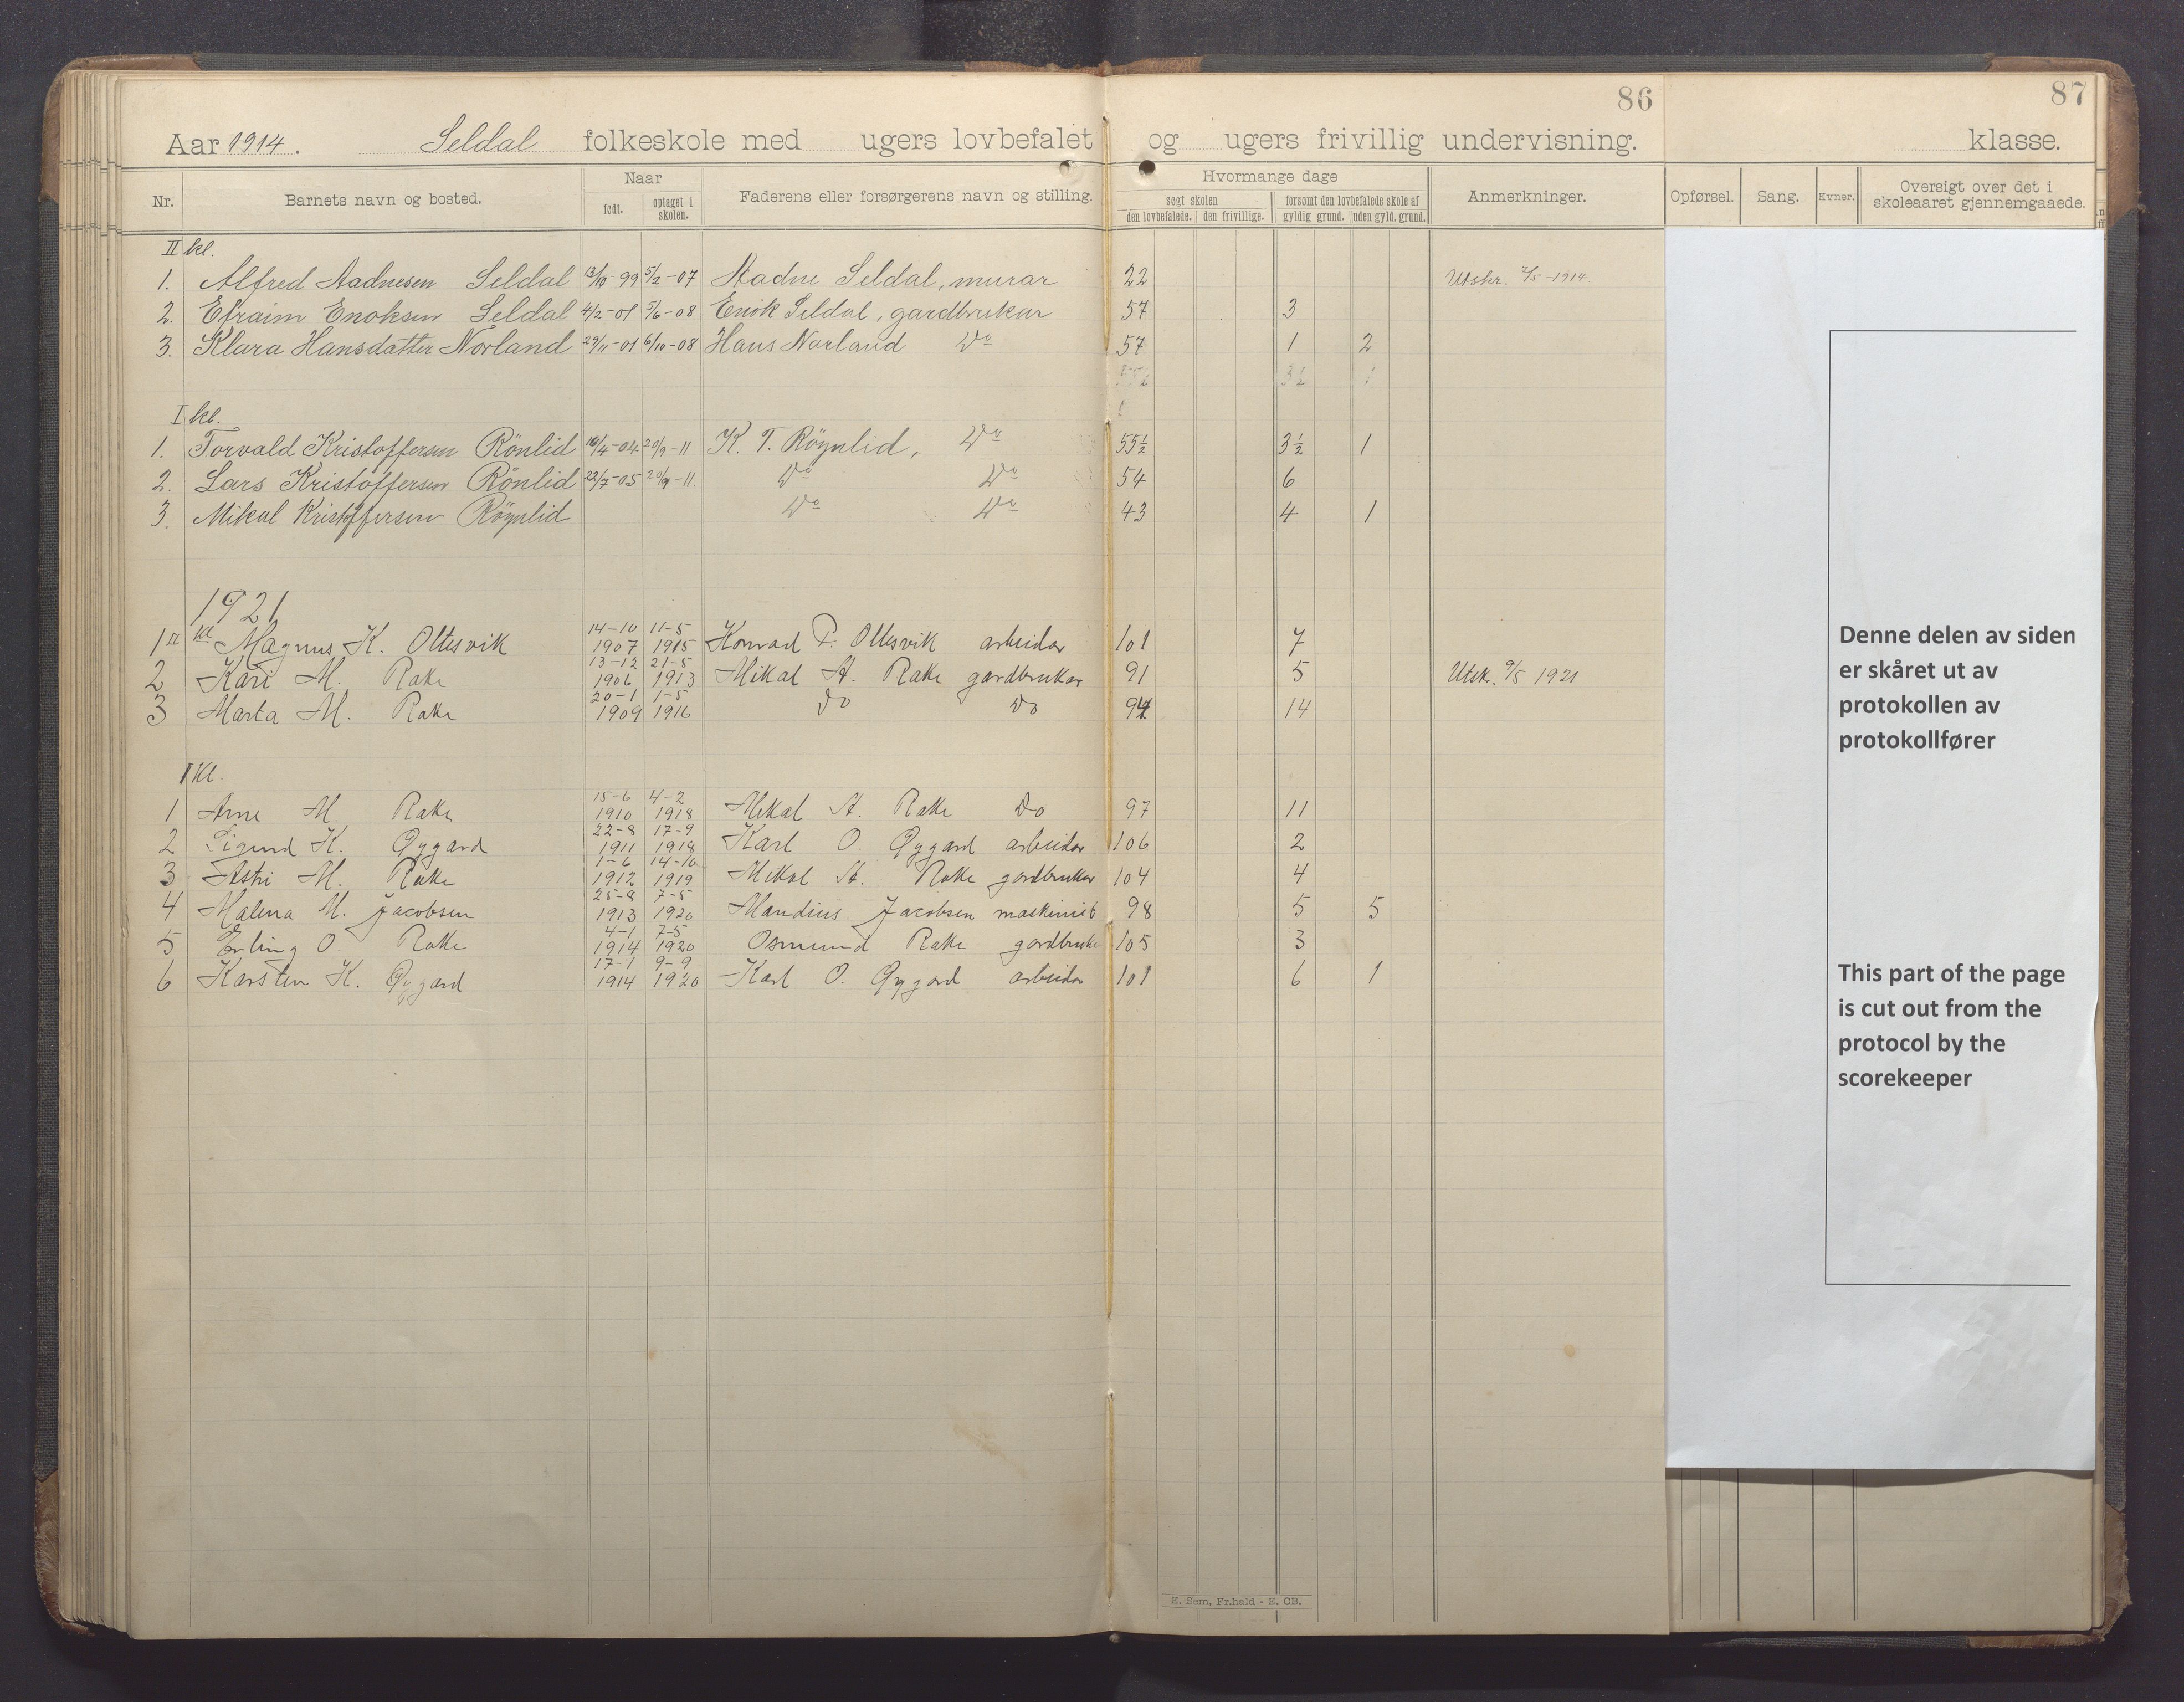 86
87
Aar 1914. Seldal folkeskole med ugers lovbefalet og ugers frivillig undervisning. klasse.
Nr. Barnets navn og bosted. Naar født. optaget i skolen. Faderens eller forsørgerens navn og stilling. Hvormange dage søgt skolen den lovbefalede. den frivillige. forsømt den lovbefalede skole af gyldig grund. uden gyld. grund. Anmerkninger. Opførsel. Sang. Evner. Oversigt over det i skoleaaret gjennemgaaede.
II kl.
1. Alfred Aadnesen Seldal 13/10-99 5/2-07 Aadne Seldal, murar 22 Utskr. 2/5-1914.
2. Efraim Enoksen Seldal 4/2-01 5/6-08 Enok Seldal, gardbrukar 57 3
3. Klara Hansdatter Norland 29/11-01 6/10-08 Hans Norland Do 57 1 2
I kl.
1. Torvald Kristoffersen Rönlid 16/4-04 20/9-11 K. T. Röynlid, Do 55½ 3½ 1
2. Lars Kristoffersen Rönlid 22/7-05 20/9-11. Do Do 54 6
3. Mikal Kristoffersen Röynlid Do Do 43 4 1
1921
1 II kl Magnus K. Oltesvik 14-10 1907 11-5 1915 Konrad P. Oltesvik arbeidar 101 7
2 Kari M. Rake 13-12 1906 21-5 1913 Mikal A. Rake gardbrukar 91 5 Utsk. 9/5 1921
3 Marta M. Rake 20-1 1909 1-5 1916 Do Do 94 14
I Kl.
1 Arne M. Rake 15-6 1910 4-2 1918 Mikal A. Rake Do 97 11
2 Sigurd K. Øygard 22-8 1911 17-9 1918 Karl O. Øygard arbeidar 106 2
3 Astri M. Rake 1-6 1912 14-10 1919 Mikal A. Rake gardbrukar 104 4
4 Malena M. Jacobsen 25-8 1913 7-5 1920 Mandius Jacobsen maskinist 98 5 5
5 Erling O Rake 4-1 1914 7-5 1920 Osmund Rake gardbruke 105 3
6 Karsten K. Øygard 17-1 1914 9-9 1920 Karl O. Øygard arbeidar 101 6 1
Denne delen av siden
er skåret ut av
protokollen av
protokollfører
This part of the page
is cut out from the
protocol by the
scorekeeper
E. Sem, Fr.hald - E. CB.